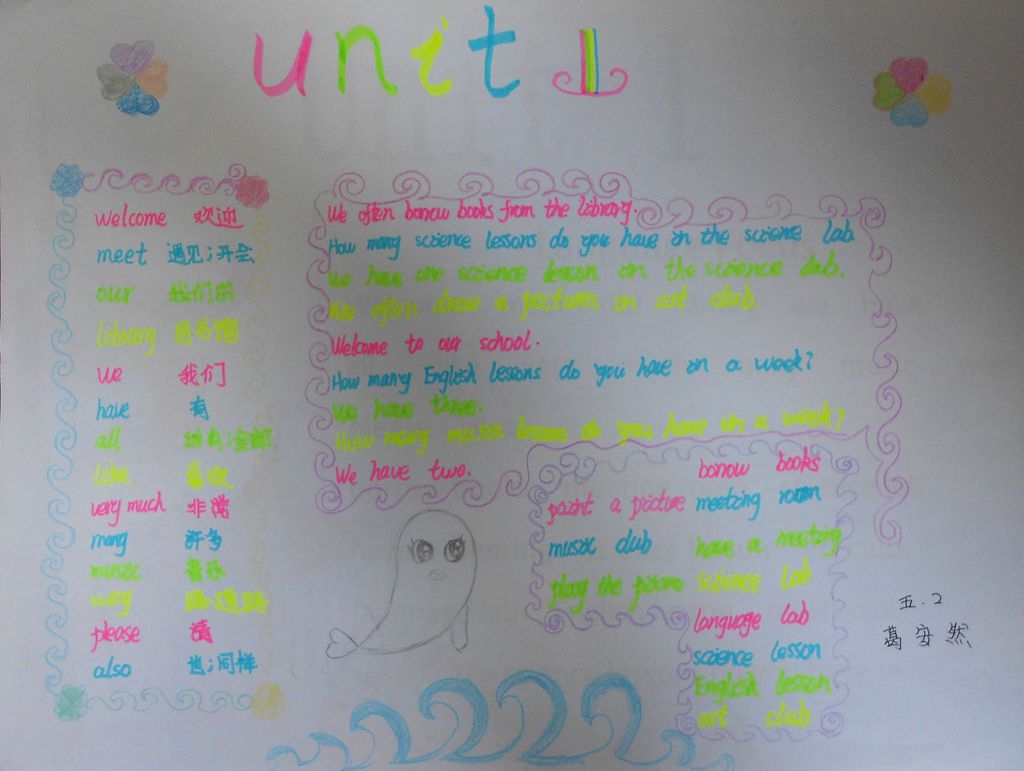 unit 1
welcome 欢迎
meet 遇见;开会
our 我们的
library 图书馆
we 我们
have 有
all 全部
like 喜欢
very much 非常
many 许多
music 音乐
way 路;道路
please 请
also 也;同样
We often borrow books from the library.
How many science lessons do you have in the science lab
We have one science lesson in the science lab.
We often draw a pictures in art club.
Welcome to our school.
How many English lessons do you have in a week?
We have three.
How many music lessons do you have in a week?
We have two.
borrow books
paint a picture meeting room
music club have a meeting
play the piano science lab
language lab
science lesson
English lesson
art club
五.2
葛安然